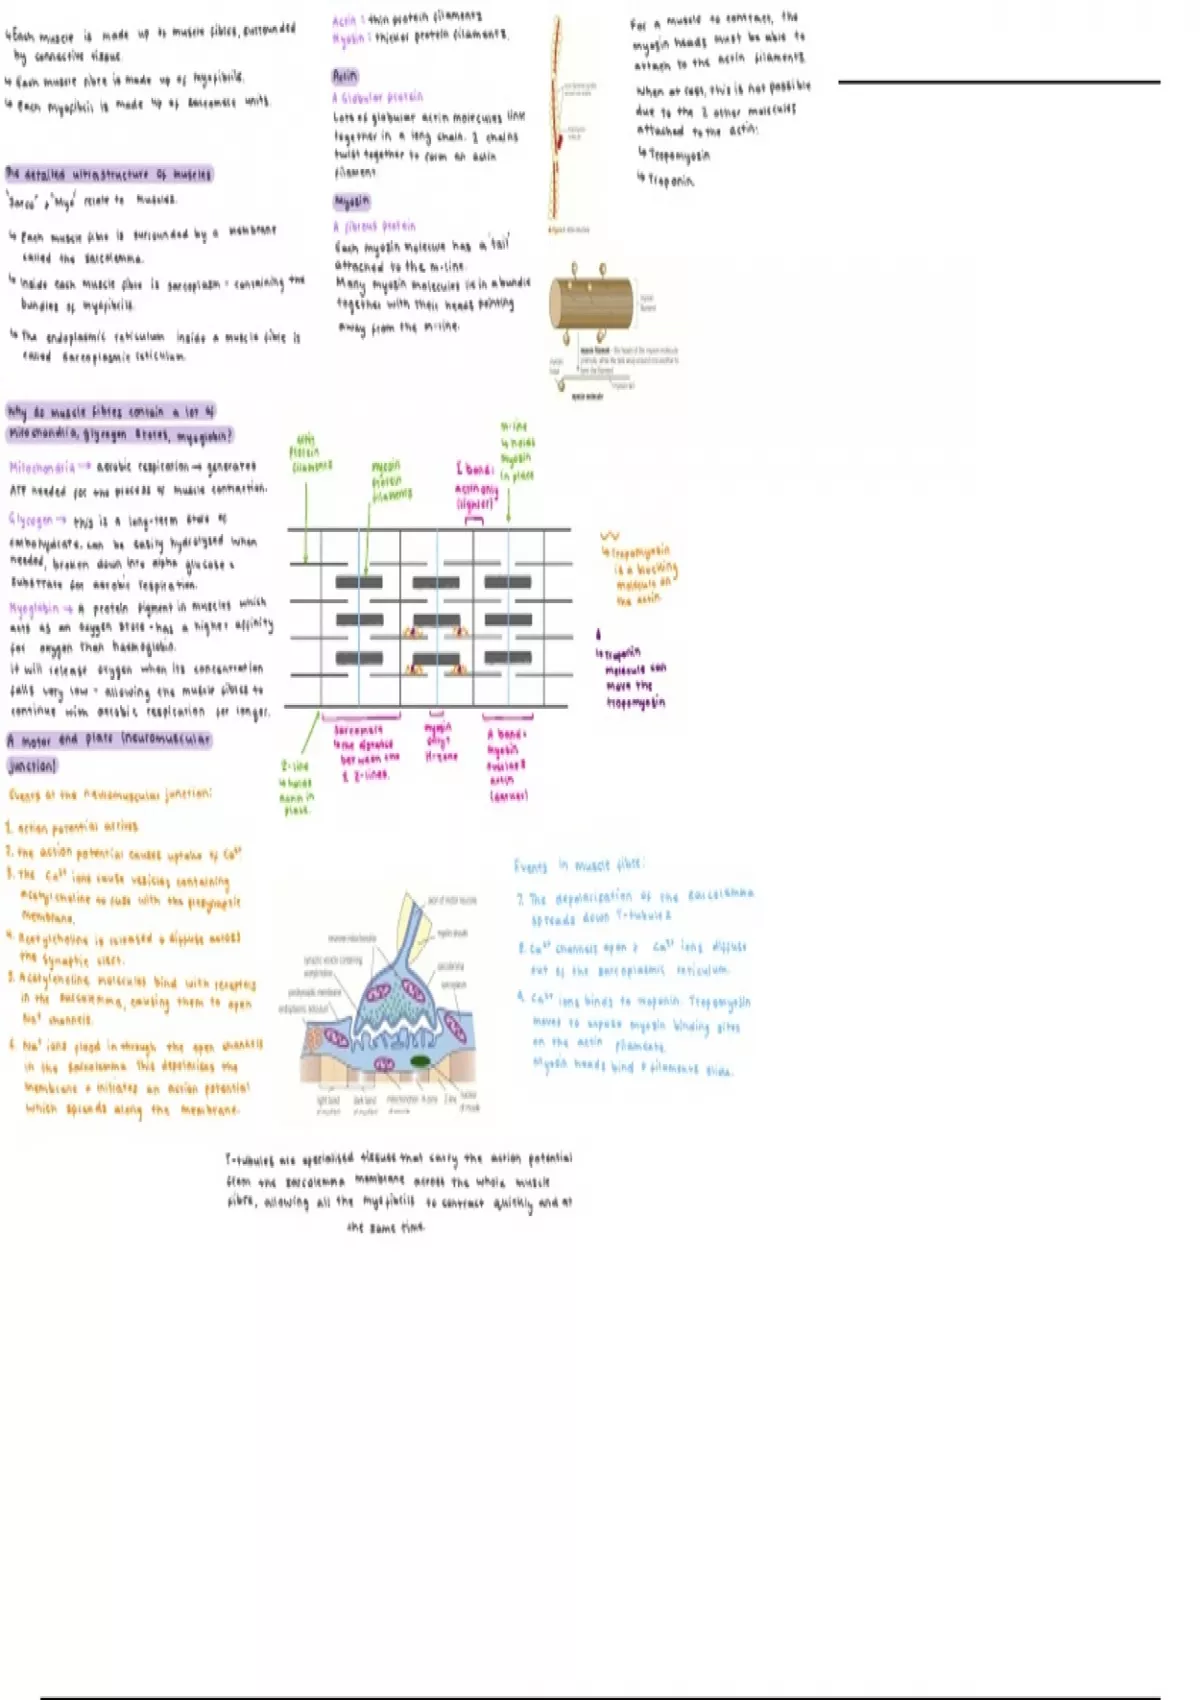 ↳ Each muscle is made up to muscle fibres, surrounded
by connective tissue.
↳ Each muscle fibre is made up of myofibrils.
↳ Each myofibril is made up of sarcomere units.
The detailed ultrastructure of muscles
"Sarco" + "Myo" relate to muscles.
↳ Each muscle fibre is surrounded by a membrane
called the sarcolemma.
↳ Inside each muscle fibre is sarcoplasm - containing the
bundles of myofibrils.
↳ The endoplasmic reticulum inside a muscle fibre is
called sarcoplasmic reticulum.
Why do muscle fibres contain a lot of
mitochondria, glycogen stores, myoglobin?
Mitochondria → aerobic respiration → generates
ATP needed for the process of muscle contraction.
Glycogen → this is a long-term store of
carbohydrate. can be easily hydrolysed when
needed, broken down into alpha glucose =
substrate for aerobic respiration.
Myoglobin → A protein pigment in muscles which
acts as an oxygen store - has a higher affinity
for oxygen than haemoglobin.
it will release oxygen when its concentration
falls very low - allowing the muscle fibres to
continue with aerobic respiration for longer.
A motor end plate (neuromuscular
junction)
Events at the neuromuscular junction:
1. action potential arrives
2. the action potential causes uptake of Ca²⁺
3. the Ca²⁺ ions cause vesicles containing
acetylcholine to fuse with the presynaptic
membrane.
4. Acetylcholine is released + diffuse across
the synaptic cleft.
5. Acetylcholine molecules bind with receptors
in the sarcolemma, causing them to open
Na⁺ channels.
6. Na⁺ ions flood in through the open channels
in the sarcolemma this depolarises the
membrane + initiates an action potential
which spreads along the membrane.
Actin : thin protein filaments
Myosin : thicker protein filaments.
Actin
A Globular protein
Lots of globular actin molecules link
together in a long chain. 2 chains
twist together to form an actin
filament.
Myosin
A fibrous protein
Each myosin molecule has a 'tail'
attached to the m-line.
Many myosin molecules lie in a bundle
together with their heads pointing
away from the m-line.
For a muscle to contract, the
myosin heads must be able to
attach to the actin filaments.
When at rest, this is not possible
due to the 2 other molecules
attached to the actin:
↳ Tropomyosin
↳ Troponin
myosin filament
myosin tail
myosin molecule
actin
protein
filaments
myosin
protein
filaments
I band:
actin only
(lighter)
m-line
↳ holds
myosin
in place
↳ Tropomyosin
is a blocking
molecule on
the actin.
↳ Troponin
molecule can
move the
tropomyosin
Z-line
↳ holds
actin in
place.
Sarcomere
the distance
between the
2 Z-lines.
myosin
only:
H-zone
A band:
myosin
actin
(darker)
axon of motor neurone
myelin sheath
neurone mitochondria
synaptic vesicle containing
acetylcholine
presynaptic membrane
endoplasmic reticulum
sarcolemma
sarcoplasm
light band
of myofibril
dark band
of myofibril
mitochondrion
of muscle
H zone
Z line
nucleus
of muscle
Events in muscle fibre:
7. The depolarisation of the sarcolemma
spreads down T-tubules
8. Ca²⁺ channels open + Ca²⁺ ions diffuse
out of the sarcoplasmic reticulum.
9. Ca²⁺ ions binds to troponin. Tropomyosin
moves to expose myosin binding sites
on the actin filaments.
Myosin heads bind + filaments slide.
T-tubules are specialised tissues that carry the action potential
from the sarcolemma membrane across the whole muscle
fibre, allowing all the myofibrils to contract quickly and at
the same time.